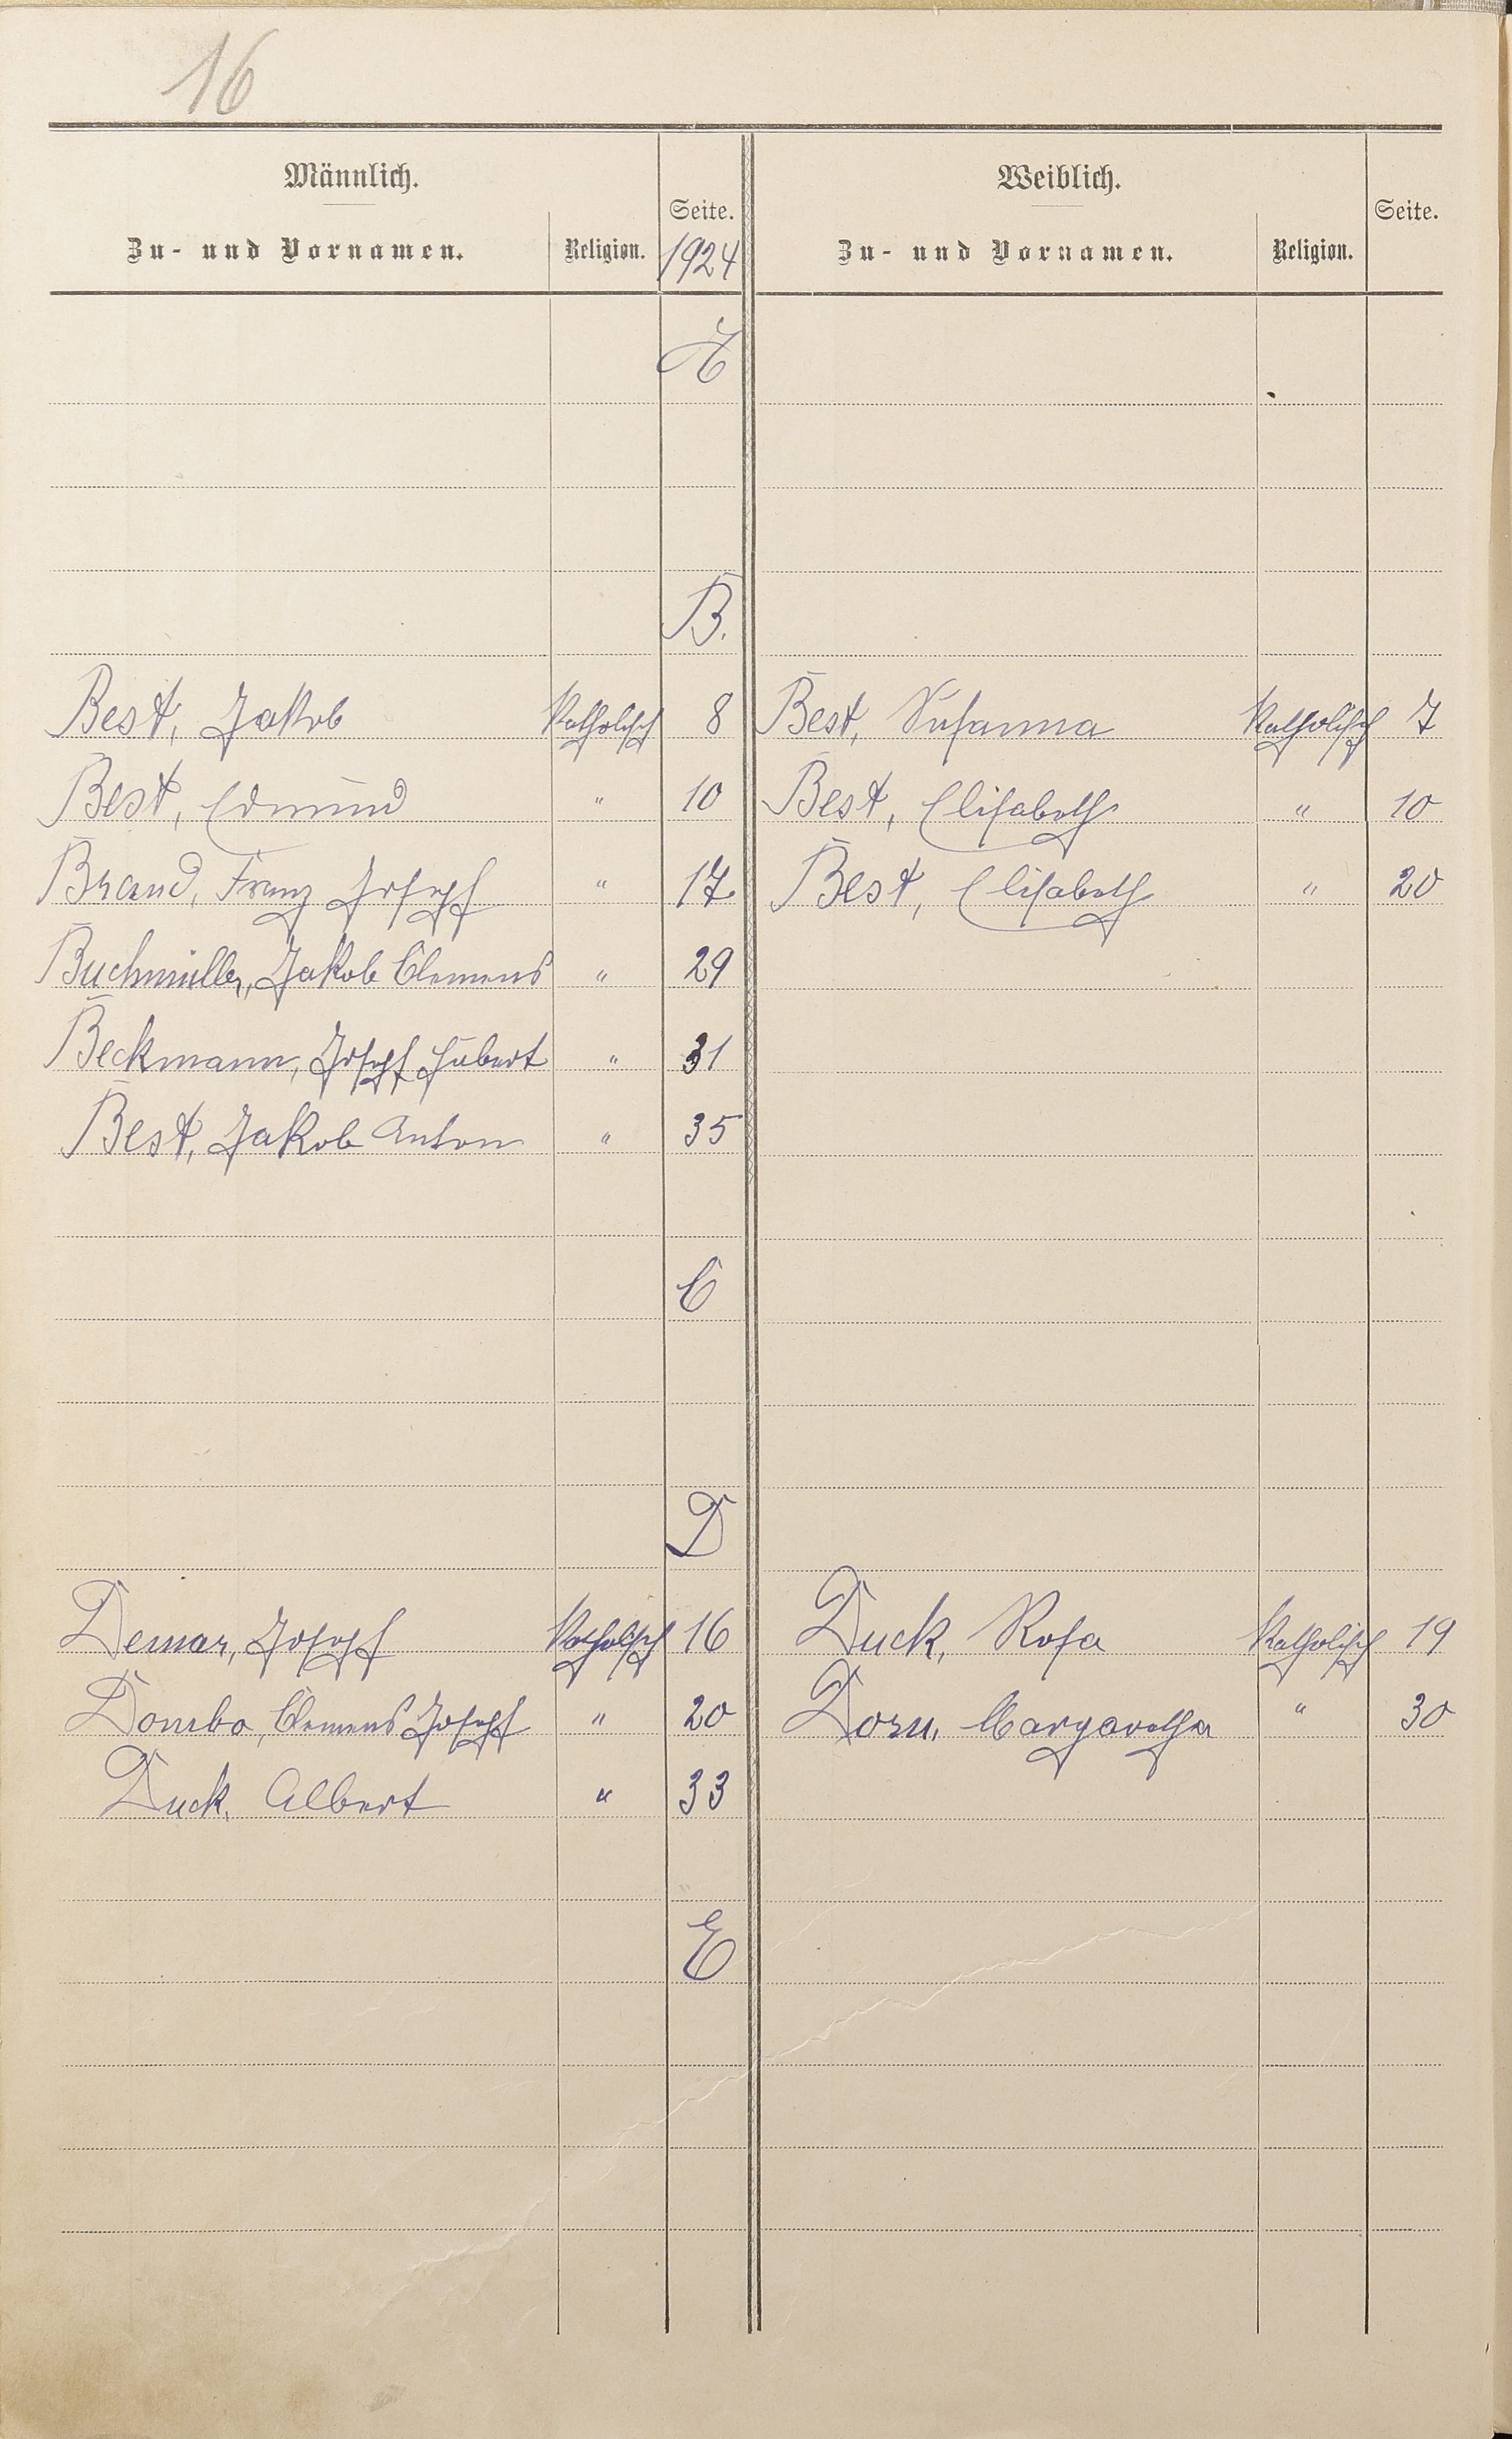 16
Männlich. Weiblich.
Seite. Seite.
Zu- und Vornamen. Religion. 1924 Zu- und Vornamen. Religion.
A
B.
Best, Jakob Katholisch 8 Best, Susanna Katholisch 7
Best, Edmund " 10 Best, Elisabeth " 10
Brand, Franz Joseph " 17 Best, Elisabeth " 20
Buchmüller, Jakob Clemens " 29
Beckmann, Joseph Hubert " 31
Best, Jakob Anton " 35
C
D
Demar, Joseph Katholisch 16 Duck, Rosa Katholisch 19
Dombo, Clemens Joseph " 20 Dorn, Margaretha " 30
Duck, Albert " 33
E